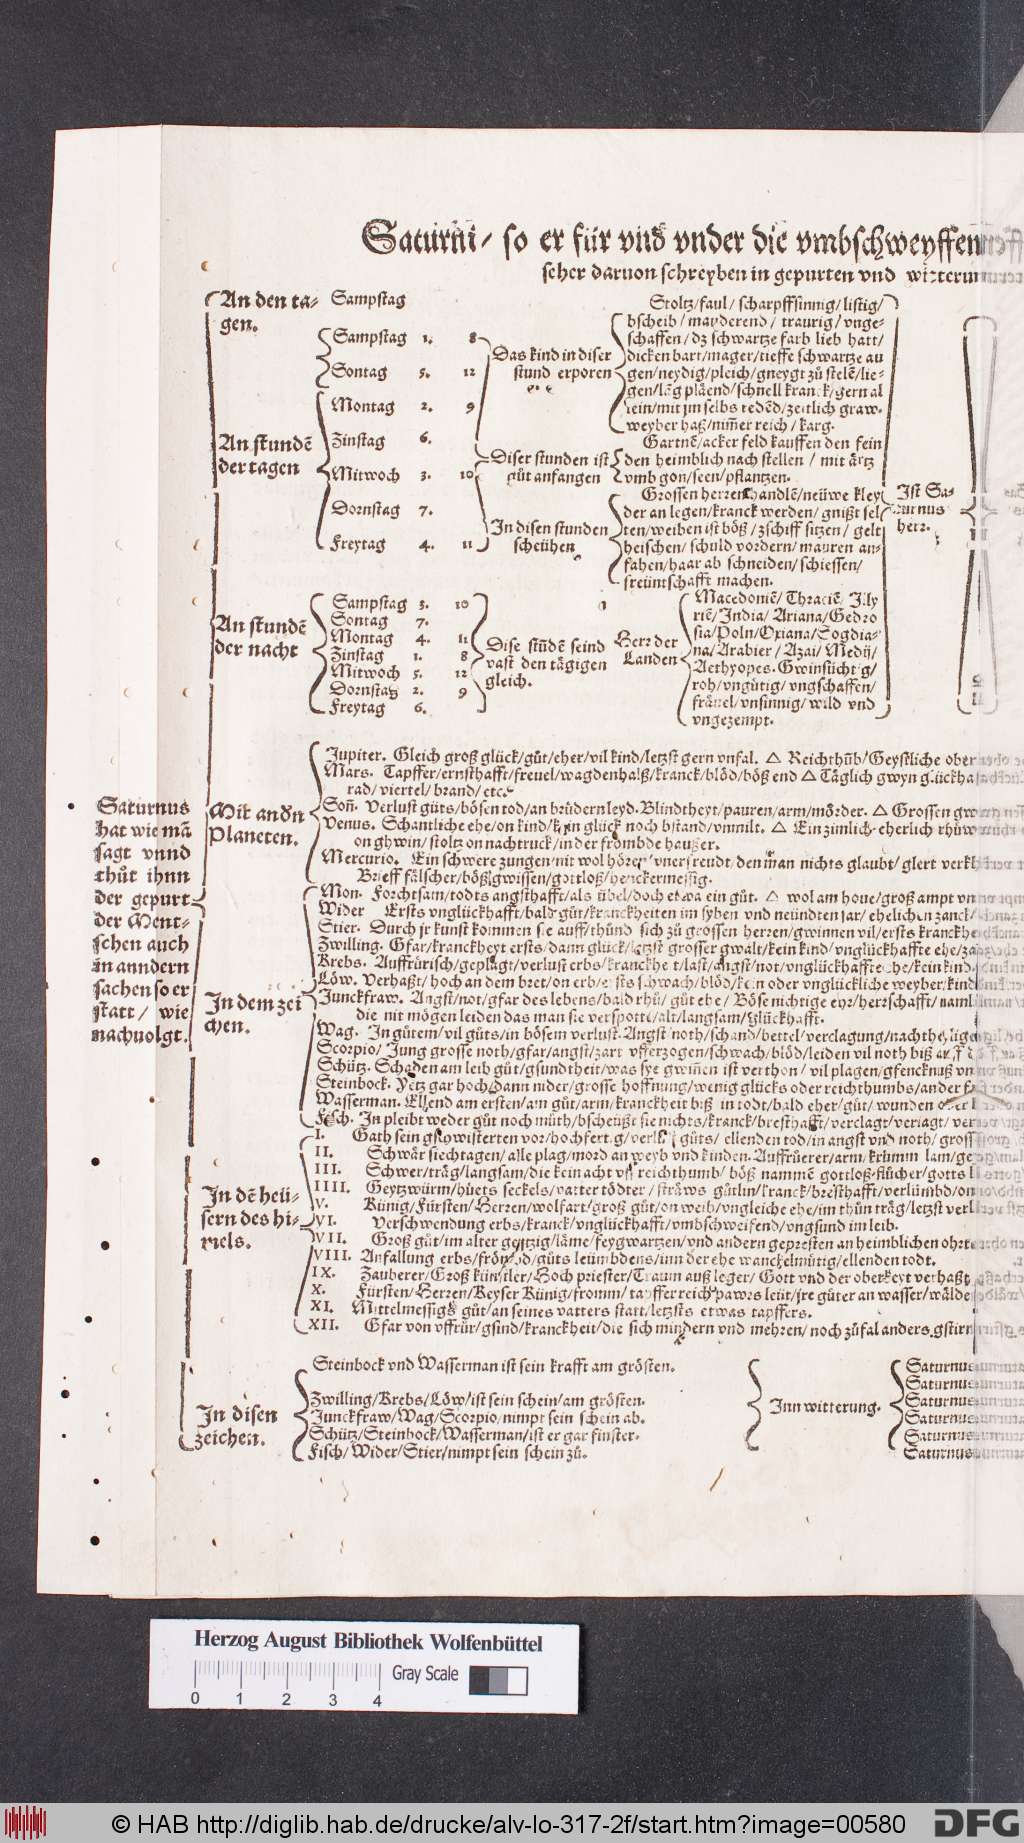 Saturni / so er für vnd vnder die vmbschweyffen
scher daruon schreyben in gepurten vnd
An den ta-
gen.
Sampstag
An stundē
der tagen
Sampstag 1. 8
Sontag 5. 12
Montag 2. 9
Zinstag 6.
Mitwoch 3. 10
Dornstag 7.
Freytag 4. 11
Das kind in diser
stund erporen
Stoltz/faul/ scharpffsinnig/ listig/
bscheib/ mauderend/ traurig/ vnge-
schaffen/ dz schwartze farb lieb hatt/
dicken bart/mager/tieffe schwartze au
gen/neydig/pleich/gneygt zů stelē/lie-
gen/lāg plāend/schnell kranck/gern al
lein/mit jm selbs redēd/zeitlich graw-
weyber haß/nim̄er reich/ karg.
Diser stunden ist
gůt anfangen
Gartnē/acker feld kauffen den fein
den heimblich nach stellen/ mit ärtz
vmb gon/seen/pflantzen.
In disen stunden
scheühen
Grossen herren handlē/neüwe kley
der an legen/kranck werden/ gnißt sel
ten/weiben ist böß/ zschiff sitzen/ gelt
heischen/ schuld vordern/ mauren an-
fahen/haar ab schneiden/ schiessen/
freüntschafft machen.
Ist Sa-
turnus
herr.
An stundē
der nacht
Sampstag 3. 10
Sontag 7.
Montag 4. 11
Zinstag 1. 8
Mitwoch 5. 12
Dornstag 2. 9
Freytag 6.
Dise stūdē seind
vast den tägigen
gleich.
Herr der
Landen
Macedoniē/ Thraciē/ Jlly
riē/ India/ Ariana/ Gedro
sia/Poln/Oxiana/Sogdia-
na/Arabier/ Azai/ Medij/
Aethyopes. Gwinsüchtig/
roh/vngütig/ vngschaffen/
fräuel/vnsinnig/ wild vnd
vngezempt.
Saturnus
hat wie mā
sagt vnnd
thůt ihnn
der gepurt
der Ment-
schen auch
in anndern
sachen so er
statt/ wie
nachuolgt.
Mit andn
Planeten.
Jupiter. Gleich groß glück/gůt/eher/vil kind/letzst gern vnfal. △ Reichthūb/Geystliche ober
Mars. Tapffer/ernsthafft/freuel/wagdenhalß/kranck/blöd/böß end △ Täglich gwyn glückha
rad/ viertel/ brand/ etc.
Soñ. Verlust gůts/bösen tod/an brüdern leyd. Blindtheyt/pauren/arm/mörder. △ Grossen
Venus. Schantliche ehe/on kind/kein glück noch bstand/vnmilt. △ Ein zimlich eherlich
on gwin/ stoltz on nachtruck/in der frömbde haußer.
Mercurio. Ein schwere zungen nit wol hören/vnersreudt/den man nichts glaubt/ glert
Brieff fälscher/bößgwissen/gottloß/henckermessig.
In dem zei
chen.
Mon. Forchtsam/todts angsthafft/als übel/doch etwa ein gůt. △ wol am houe/groß ampt
Wider Ersts vnglückhafft/bald gůt/kranckheiten im syben vnd neündten jar/ ehelichen zanck/
Stier. Durch jr kunst kommen sie auff/thůnd sich zů grossen herren/gwinnen vil/ersts
Zwilling. Gfar/kranckheyt ersts/dann glück/letzst grosser gwalt/kein kind/ vnglückhaffte ehe/
Krebs. Auffrürisch/geplagt/verlust erbs/kranckheit/last/angst/not/vnglückhaffte ehe/kein kind
Löw. Verhaßt/ hoch an dem bret/on erb/ersts schwach/blöd/kein oder vnglückliche weyber/
Junckfraw. Angst/not/gfar des lebens/bald rhů/ gůt ehe/ Böse nichtige eyr/herrschafft/
die nit mögen leiden das man sie verspottē/alt/langsam/glückhafft.
Wag. In gůtem/vil gůts/in bösem verlust. Angst/noth/schand/bettel/verclagung/
Scorpio/ Jung grosse noth/gfar/angst/zart vfferzogen/schwach/blöd/leiden vil noth biß
Schütz. Schaden am leib gůt/gsundtheit/was sye gwiñen ist verthon/ vil plagen/gfencknuß
Steinbock. Yetz gar hoch/dann nider/grosse hoffnung/wenig glücks oder reichthumbs/ander
Wasserman. Ellend am ersten/am gůt/arm/kranckheit biß in todt/bald eher/gůt/ wunden
Fisch. In pleibt weder gůt noch můth/bscheüßt sie nichts/kranck/bresthafft/verclagt/veriagt/
In dē heü-
sern des hi-
mels.
I. Gath sein gschwisterten vor/hochfertig/verlust gůts/ ellenden tod/in angst vnd noth/
II. Schwär siechtagen/ alle plag/mord an weyb vnd kinden. Auffrüerer/arm/krumm
III. Schwer/träg/langsam/die kein acht vff reichthumb/ böß nammē gottloß/flücher/gotts
IIII. Geytzwürm/hüets seckels/vatter tödter/ sträws gůtlin/kranck/bresthafft/verlümbd/
V. Künig/Fürsten/Herren/wolfart/groß gůt/on weib/vngleiche ehe/im thůn träg/letzst
VI. Verschwendung erbs/kranck/vnglückhafft/vmbschweifend/vngsund im leib.
VII. Groß gůt/im alter geytzig/läme/feygwartzen/vnd andern gepresten an heimblichen
VIII. Anfallung erbs/frömbd/gůts leümbdens/inn der ehe wanckelmütig/ellenden todt.
IX. Zauberer/Groß künstler/Hoch priester/Traum auß leger/ Gott vnd der oberkeyt verhaßt
X. Fürsten/Herren/Keyser Künig/fromm/ tapffer reich pawrs leüt/jre güter an wasser/
XI. Mittelmessigs gůt/an seines vatters statt/letzsts etwas tapffers.
XII. Gfar von vffrůr/gsind/kranckheit/die sich mindern vnd mehren/ noch zůfal anders
In disen
zeichen.
Steinbock vnd Wasserman ist sein krafft am grösten.
Zwilling/Krebs/Löw/ist sein schein/am grösten.
Junckfraw/Wag/Scorpio/nimpt sein schein ab.
Schütz/Steinbock/Wasserman/ist er gar finster.
Fisch/ Wider/ Stier/nimpt sein schein zů.
Inn witterung.
Saturnus
Saturnus
Saturnus
Saturnus
Saturnus
Saturnus
Herzog August Bibliothek Wolfenbüttel
Gray Scale
0 1 2 3 4
© HAB http://diglib.hab.de/drucke/alv-lo-317-2f/start.htm?image=00580
DFG